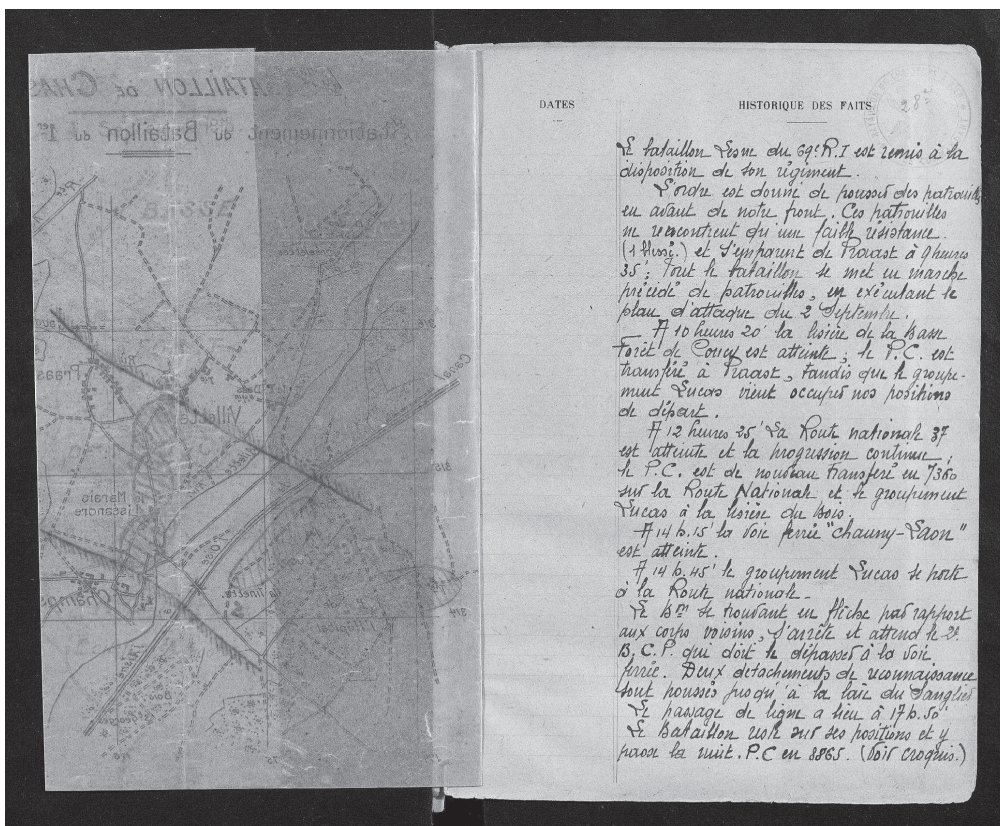 BATAILLON DE CHAS
Stationnement du Bataillon du 1er
Villette
le Marais
Lissandre
Oise
Canal
Champs
315
314
DATES
HISTORIQUE DES FAITS
28e
Le bataillon Lesne du 69e R.I est remis à la
disposition de son régiment.
L'ordre est donné de pousser des patrouilles
en avant de notre front. Ces patrouilles
ne rencontrent qu'une faible résistance.
(1 blessé.) et s'emparent de Praast à 9 heures
35'; tout le bataillon se met en marche
précédé de patrouilles, en exécutant le
plan d'attaque du 2 Septembre.
A 10 heures 20' la lisière de la Basse
Forêt de Coucy est atteinte; le P.C. est
transféré à Praast, tandis que le groupe-
ment Lucas vient occuper nos positions
de départ.
A 12 heures 25' La Route nationale 37
est atteinte et la progression continue;
le P.C. est de nouveau transféré en 7360
sur la Route Nationale et le groupement
Lucas à la lisière du Bois.
A 14 h.15' la voie ferrée "Chauny-Laon"
est atteinte.
A 14 h.45' le groupement Lucas se porte
à la Route nationale.
Le Bon se trouvant en flèche par rapport
aux corps voisins, s'arrête et attend le 2e
B.C.P. qui doit le dépasser à la voie
ferrée. Deux détachements de reconnaissance
sont poussés jusqu'à la laie du Sanglier
Le passage de ligne a lieu à 17 h.50'
Le Bataillon reste sur ses positions et y
passe la nuit. P.C en 8865. (Voir croquis.)